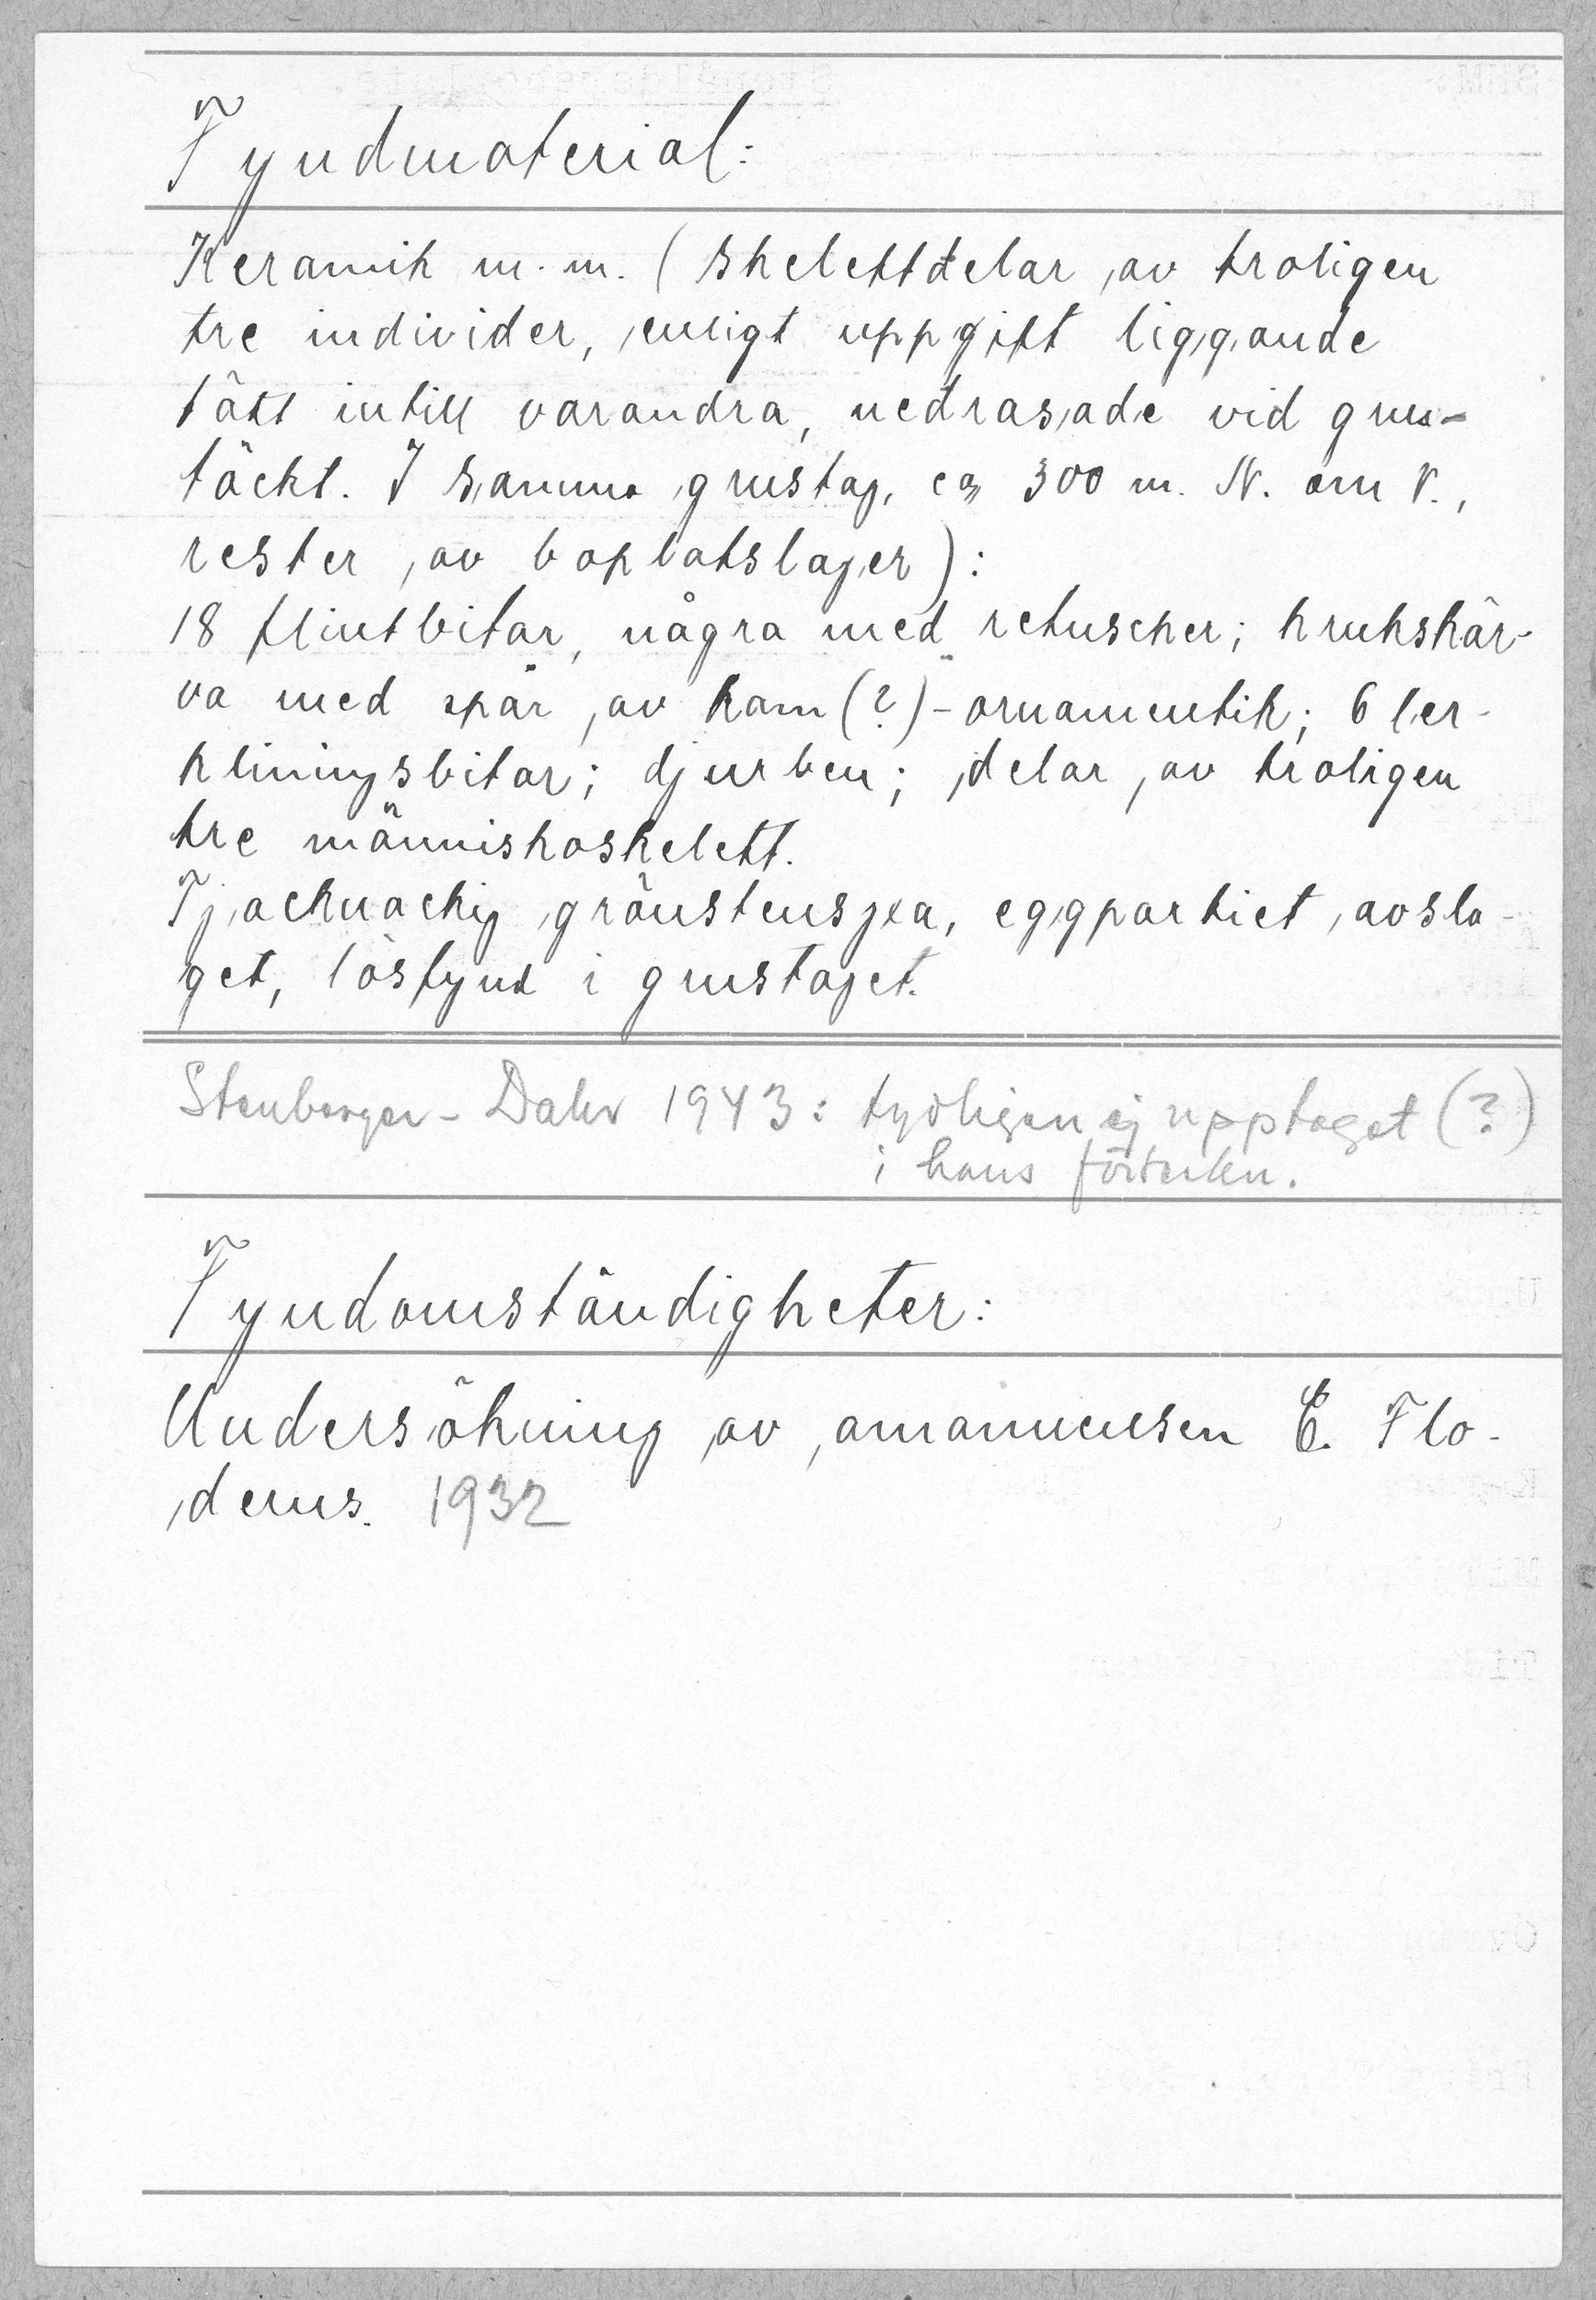 Fyndmaterial:
Keramik m.m. (skelettdelar av troligen
tre individer, enligt uppgift liggande
tätt intill varandra, nedrasade vid grus-
täckt. I samma grustag, ca 300 m. N. om V.,
rester av boplatslager):
18 flintbitar, några med retuscher; krukskär-
va med spår av kam(?)-ornamentik; 6 ler-
kliningsbitar; djurben; delar av troligen
tre människoskelett.
Tjocknackig grönstensyxa, eggpartiet avsla-
get, lösfynd i grustaget.
Stenberger - Dahr 1943: tydligen ej upptaget (?)
i hans förteckn.
Fyndomständigheter:
Undersökning av amanuensen E. Flo-
derus. 1932